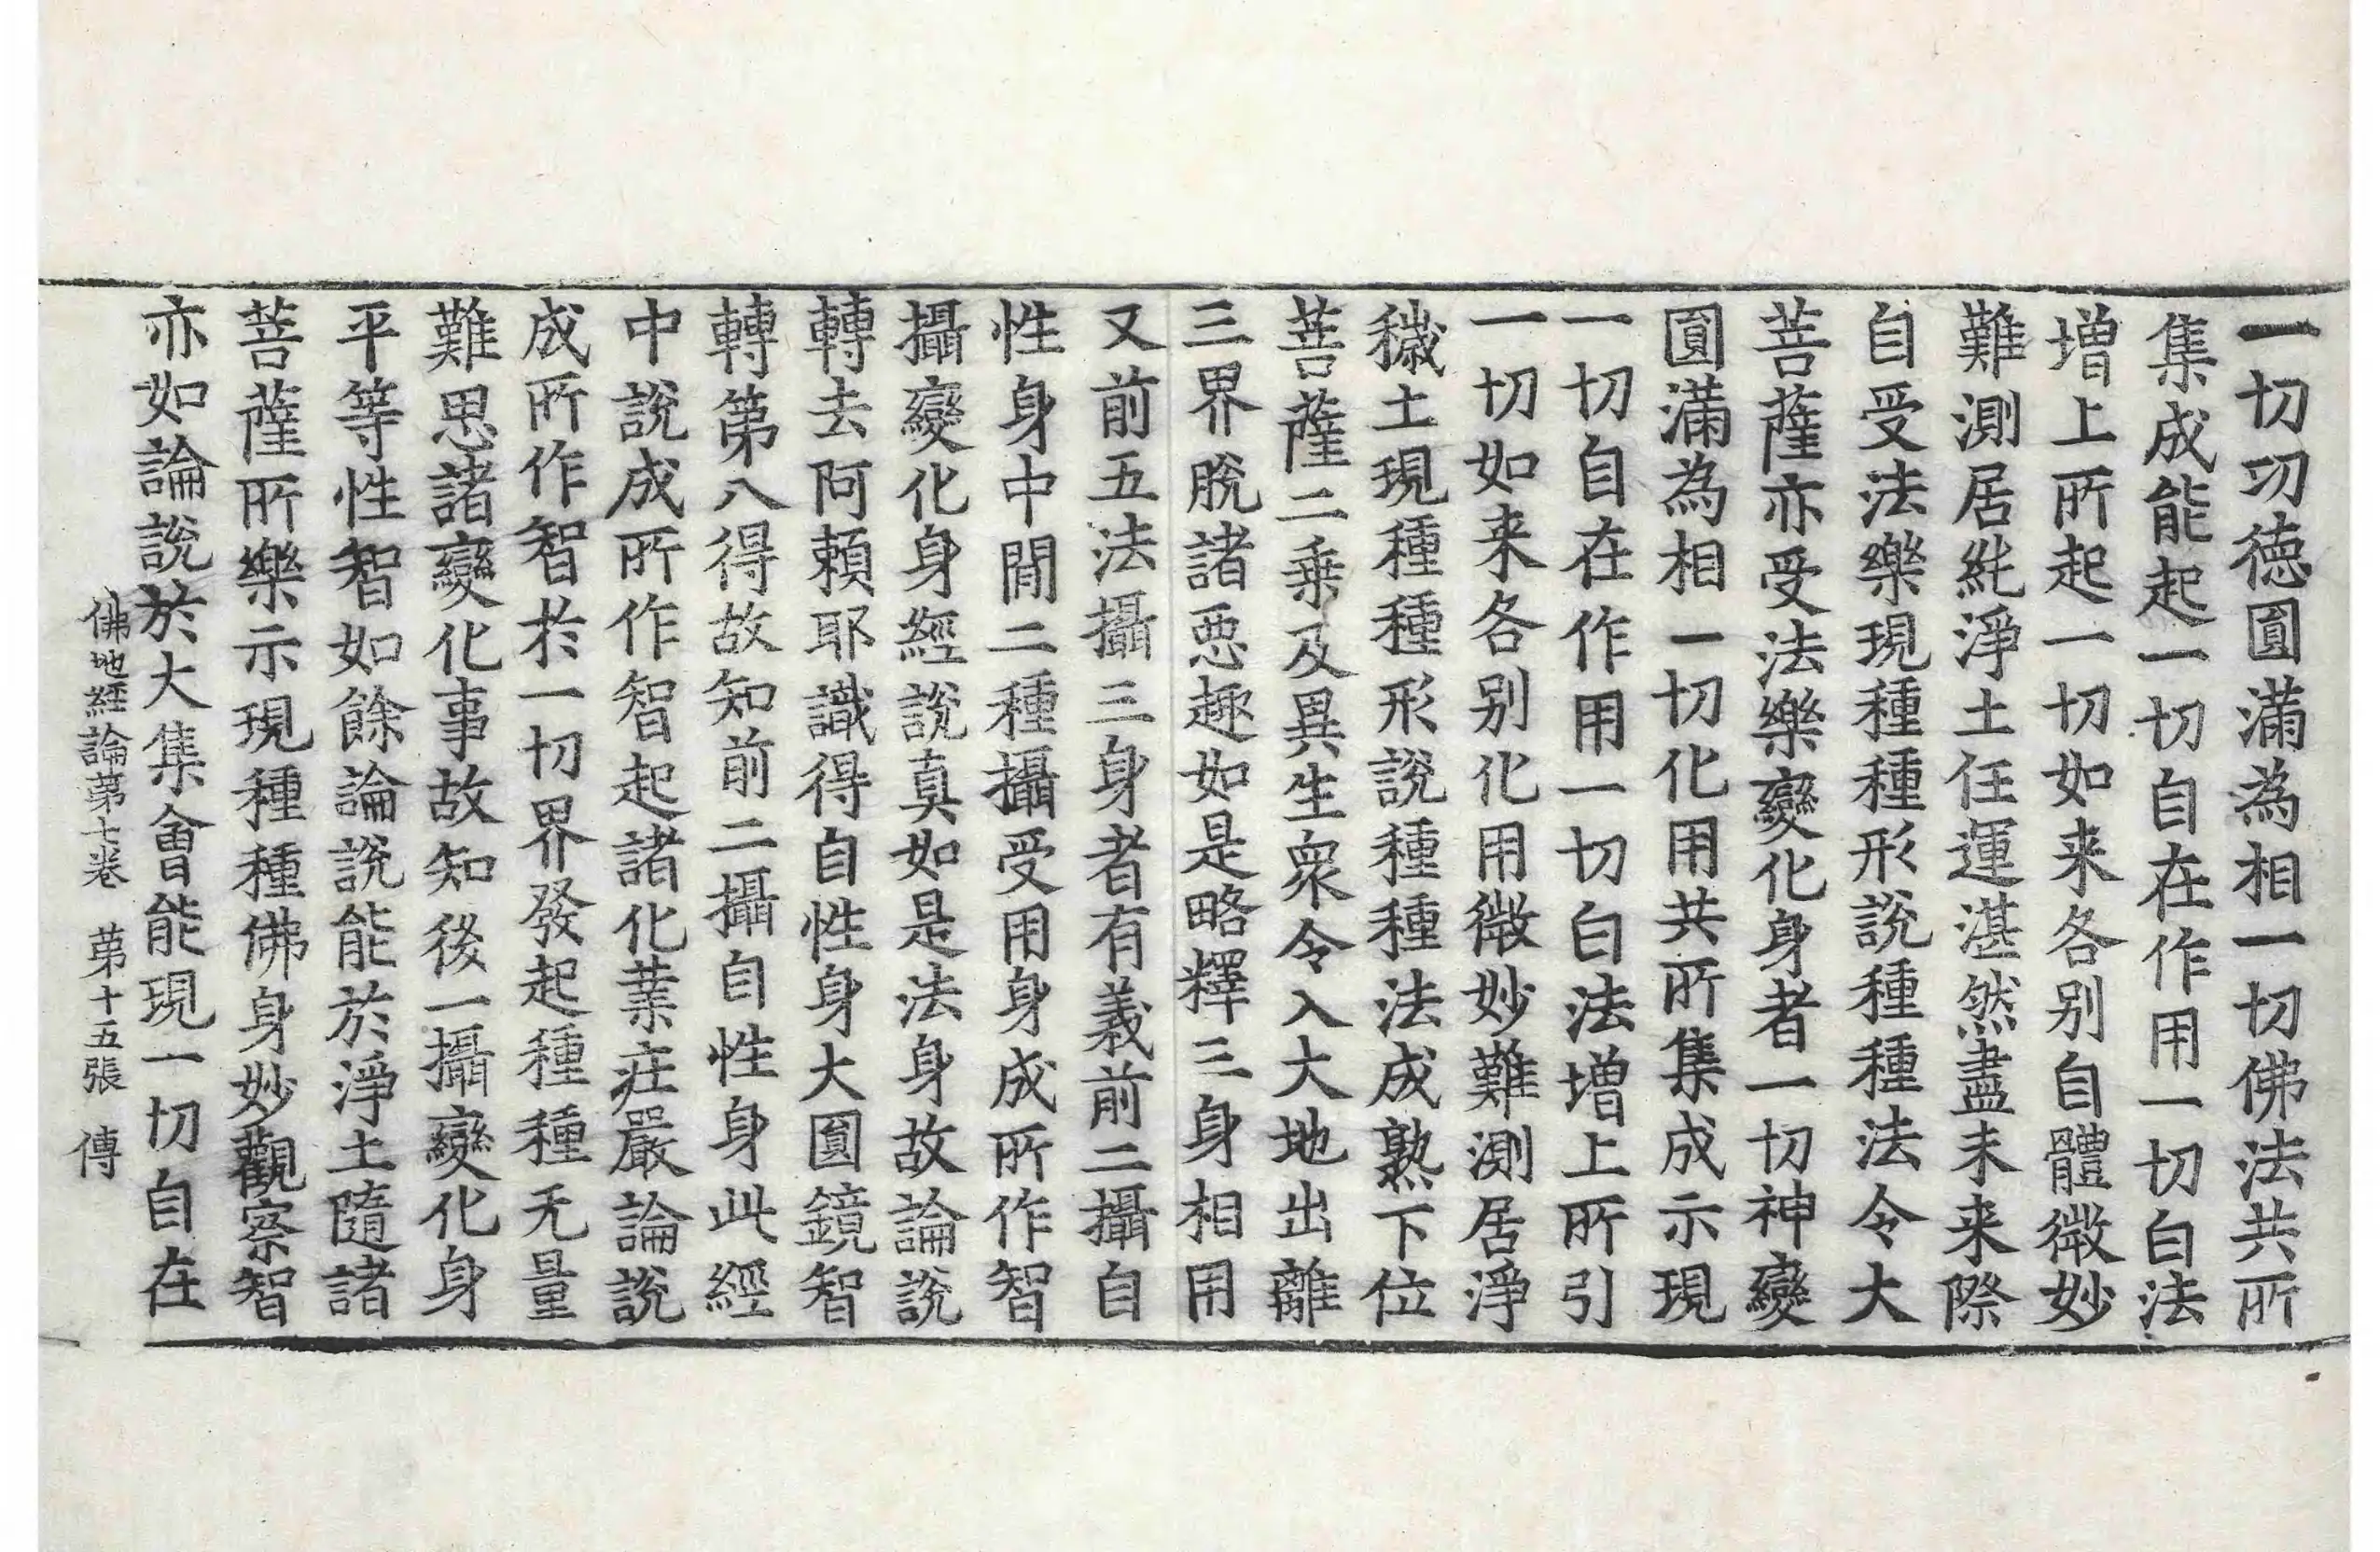 一切功德圓滿為相一切佛法共所
集成能起一切自在作用一切白法
增上所起一切如来各别自體微妙
難測居純淨土任運湛然盡未来際
自受法樂現種種形說種種法令大
菩薩亦受法樂變化身者一切神變
圓滿為相一切化用共所集成示現
一切自在作用一切白法增上所引
一切如来各别化用微妙難測居淨
穢土現種種形說種種法成熟下位
菩薩二乗及異生衆令入大地出離
三界脫諸惡趣如是略釋三身相用
又前五法攝三身者有義前二攝自
性身中間二種攝受用身成所作智
攝變化身經說真如是法身故論說
轉去阿頼耶識得自性身大圓鏡智
轉第八得故知前二攝自性身此經
中說成所作智起諸化業莊嚴論說
成所作智於一切界發起種種无量
難思諸變化事故知後一攝變化身
平等性智如餘論說能於淨土隨諸
菩薩所樂示現種種佛身妙觀察智
亦如論說於大集會能現一切自在
佛地經論第七卷 第十五張 傳